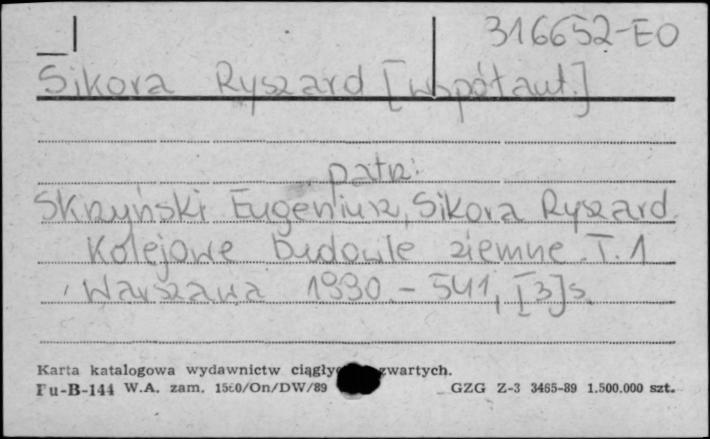 316652-EO
Sikora Ryszard [współaut.]
patrz:
Skrzyński Eugeniusz, Sikora Ryszard
Kolejowe budowle ziemne. T. 1
Warszawa 1990. - 541, [3] s.
Karta katalogowa wydawnictw zwartych.
Pu-B-144 W.A. zam. 1580/On/DW/89 GZG Z-3 3465-89 1.500.000 szt.